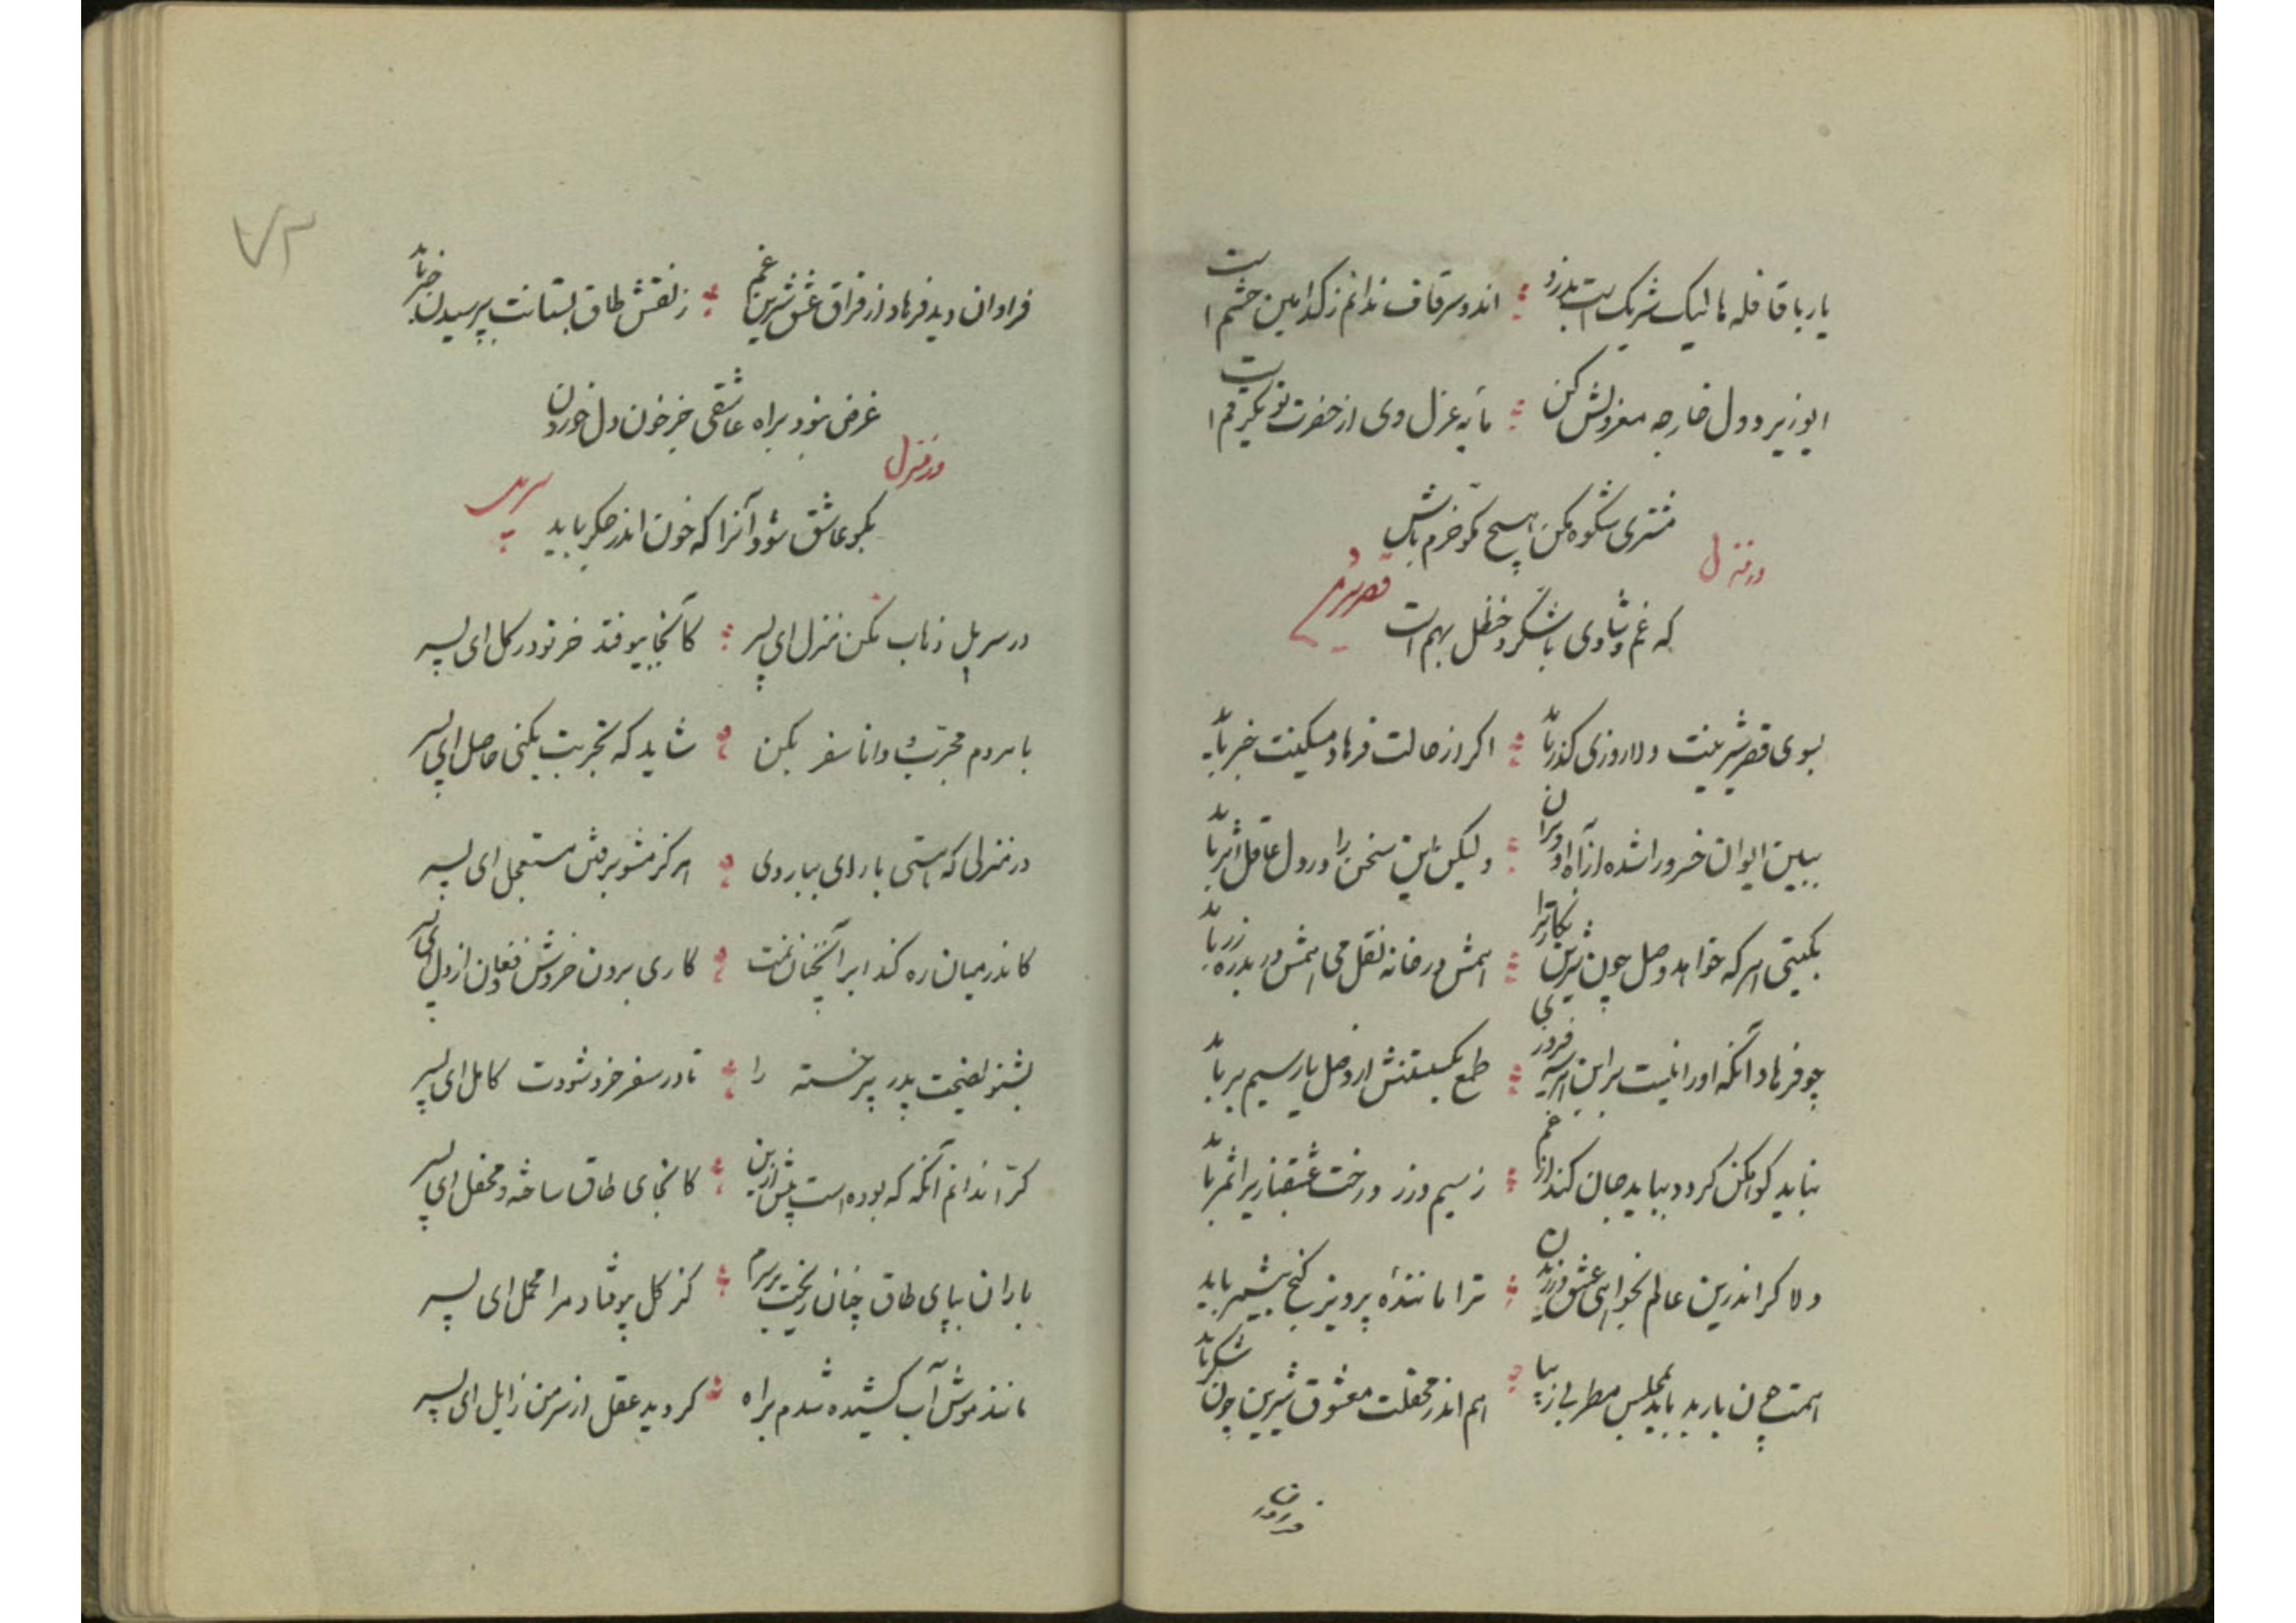 یار با قافله ما لیک شریک است بدزد ؞ اند و سر قاف ندانم ز کدامین چشم است
ایوزیر دول خارجه معزولش کن ؞ مایه عزل وی از حضرت تو یکرقم است
مشتری شکوه مکن هیچ تو خرم باش
در منزل
که غم و شادی با شکر و حنظل بهم است
قصر شیرین
بسوی قصر شیرینت دلا روزی گذر باید ؞ اگر از حالت فرهاد مسکینت خبر باید
ببین ایوان خسرو را شده از آه او ویران ؞ ولیکن این سخن را در دل عاقل اثر باید
بگیتی هر که خواهد وصل چون شیرین نگاریرا ؞ همش در خانه نقل می همش در بدره زر باید
چو فرهاد آنکه اورا نیست بر این هر سه فیروزی ؞ طمع بگسستنش از وصل یار سیمبر باید
نباید کوهکن گردد بباید جان کند از غم ؞ ز سیم و زر درخت عشقبازیرا ثمر باید
دلا گر اندرین عالم بخواهی عشق ورزیدن ؞ ترا مانندهٔ پرویز گنج بیشمر باید
همت چون باربد باید بمجلس مطربی زیبا ؞ هم اندر محفلت معشوق شیرین چون شکر باید
فراوان
۷۲
فراوان دید فرهاد از فراق عشق شیرین غم ؞ ز نقش طاق بستانت بپرسیدن خبر باید
غرض نبود براه عاشقی جز خون دل خوردن
در منزل
بگو عاشق شود آنرا که خون اندر جگر باید
سرپل
در سر پل ذهاب مکن منزل ای پسر ؞ کانجا بیوفتد خر تو در گل ای پسر
با مردم مجرّب و دانا سفر بکن ؞ شاید که تجربت بکنی حاصل ای پسر
در منزلی که هستی بارای ببار وی ؞ هرگز مشو برفتن مستعجل ای پسر
کاندر میان ره کند ابر آنچنان نمت ؞ کاری برون خروش و فغان از دل ای پسر
بشنو نصیحت پدر پیر خسته را ؞ تا در سفر خرد شودت کامل ای پسر
کرّا ندانم آنکه که بوده است پیش ازین ؞ کانجای طاق ساخته و محفل ای پسر
باران بپای طاق چنان ریخت بر سرم ؞ کز گل بیوفتاد مرا محمل ای پسر
مانند موش آب کشیده شدم براه ؞ گردید عقل از سر من زایل ای پسر